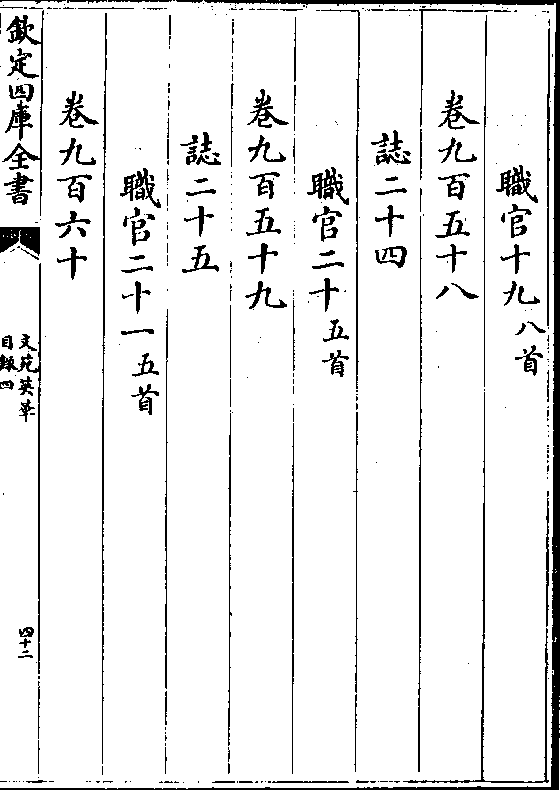 職官十九八首
卷九百五十八
誌二十四
職官二十五首
卷九百五十九
誌二十五
職官二十一五首
卷九百六十
欽定四庫全書
文苑英華
目錄四
四十二